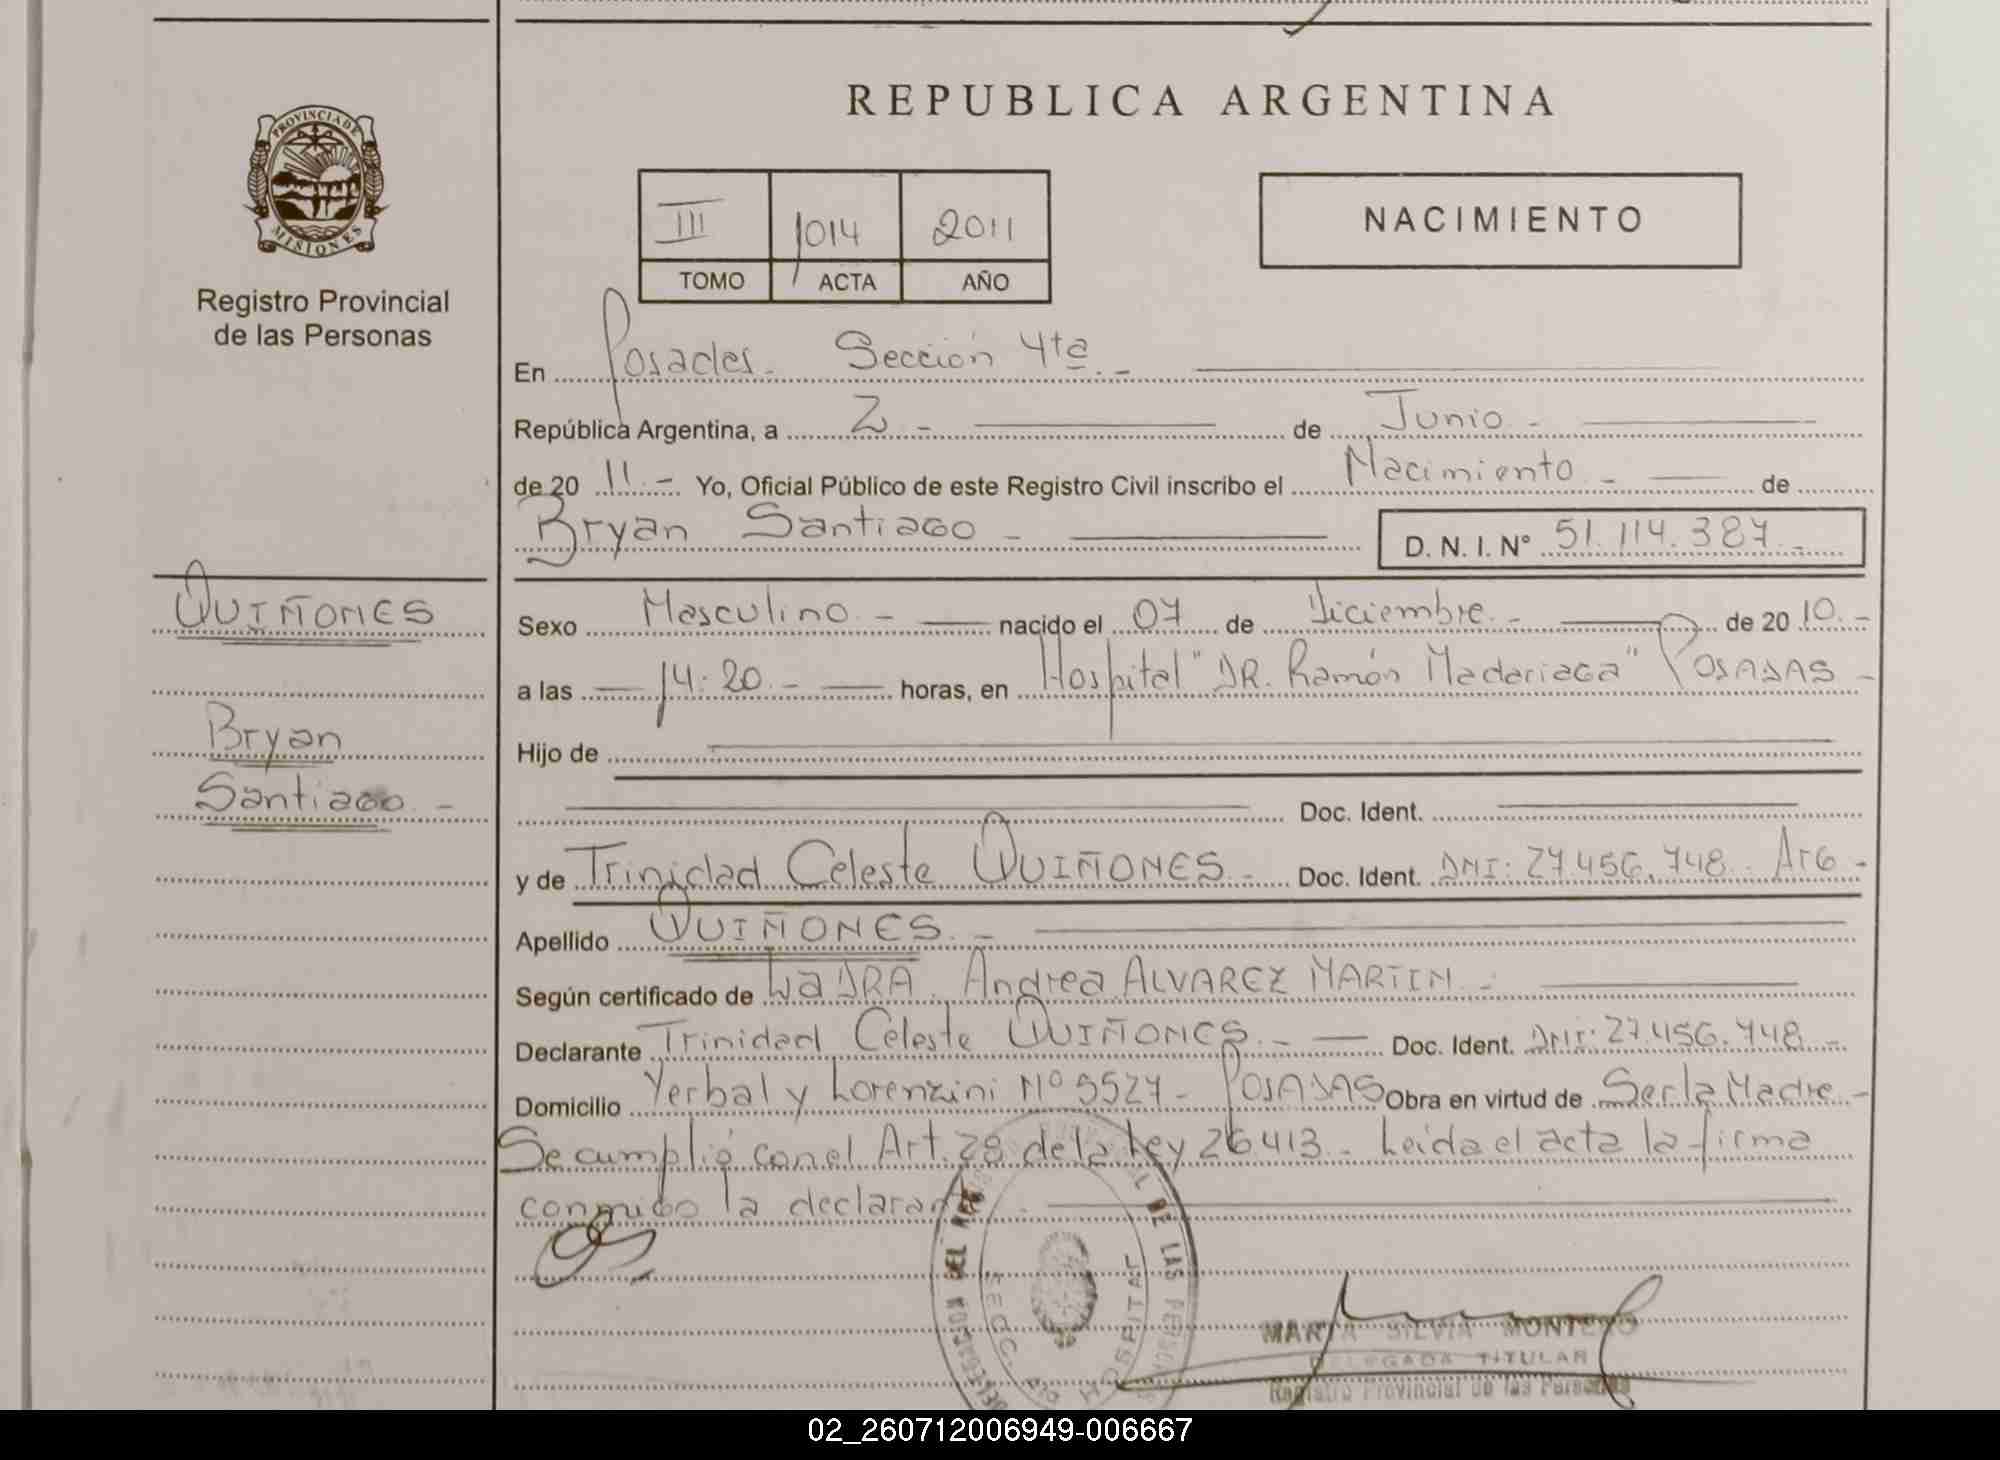 REPUBLICA ARGENTINA
PROVINCIA DE
MISIONES
Registro Provincial
de las Personas
III 1014 2011
TOMO ACTA AÑO
NACIMIENTO
En Posadas. Sección 4ta. -
República Argentina, a 2 - de Junio -
de 20 11 - Yo, Oficial Público de este Registro Civil inscribo el Nacimiento - de
Bryan Santiago - D. N. I. N° 51.114.387 -
QUIÑONES
Bryan
Santiago -
Sexo Masculino - nacido el 07 de Diciembre - de 20 10 -
a las 14:20 - horas, en Hospital "DR. Ramón Madariaga" POSADAS -
Hijo de
Doc. Ident.
y de Trinidad Celeste QUIÑONES - Doc. Ident. DNI: 27.456.748 - Arg -
Apellido QUIÑONES. -
Según certificado de La DRA. Andrea ALVAREZ MARTIN -
Declarante Trinidad Celeste QUIÑONES - Doc. Ident. DNI: 27.456.748 -
Domicilio Yerbal y Lorenzini Nº 5527 - POSADAS Obra en virtud de Ser la Madre -
Se cumplió con el Art. 28 de la Ley 26413 - Leída el acta la firma
conmigo la declarante.
DE LAS
SECC. HOSPITAL
MARTA SILVIA MONTERO
DELEGADA TITULAR
Registro Provincial de las Personas
02_260712006949-006667